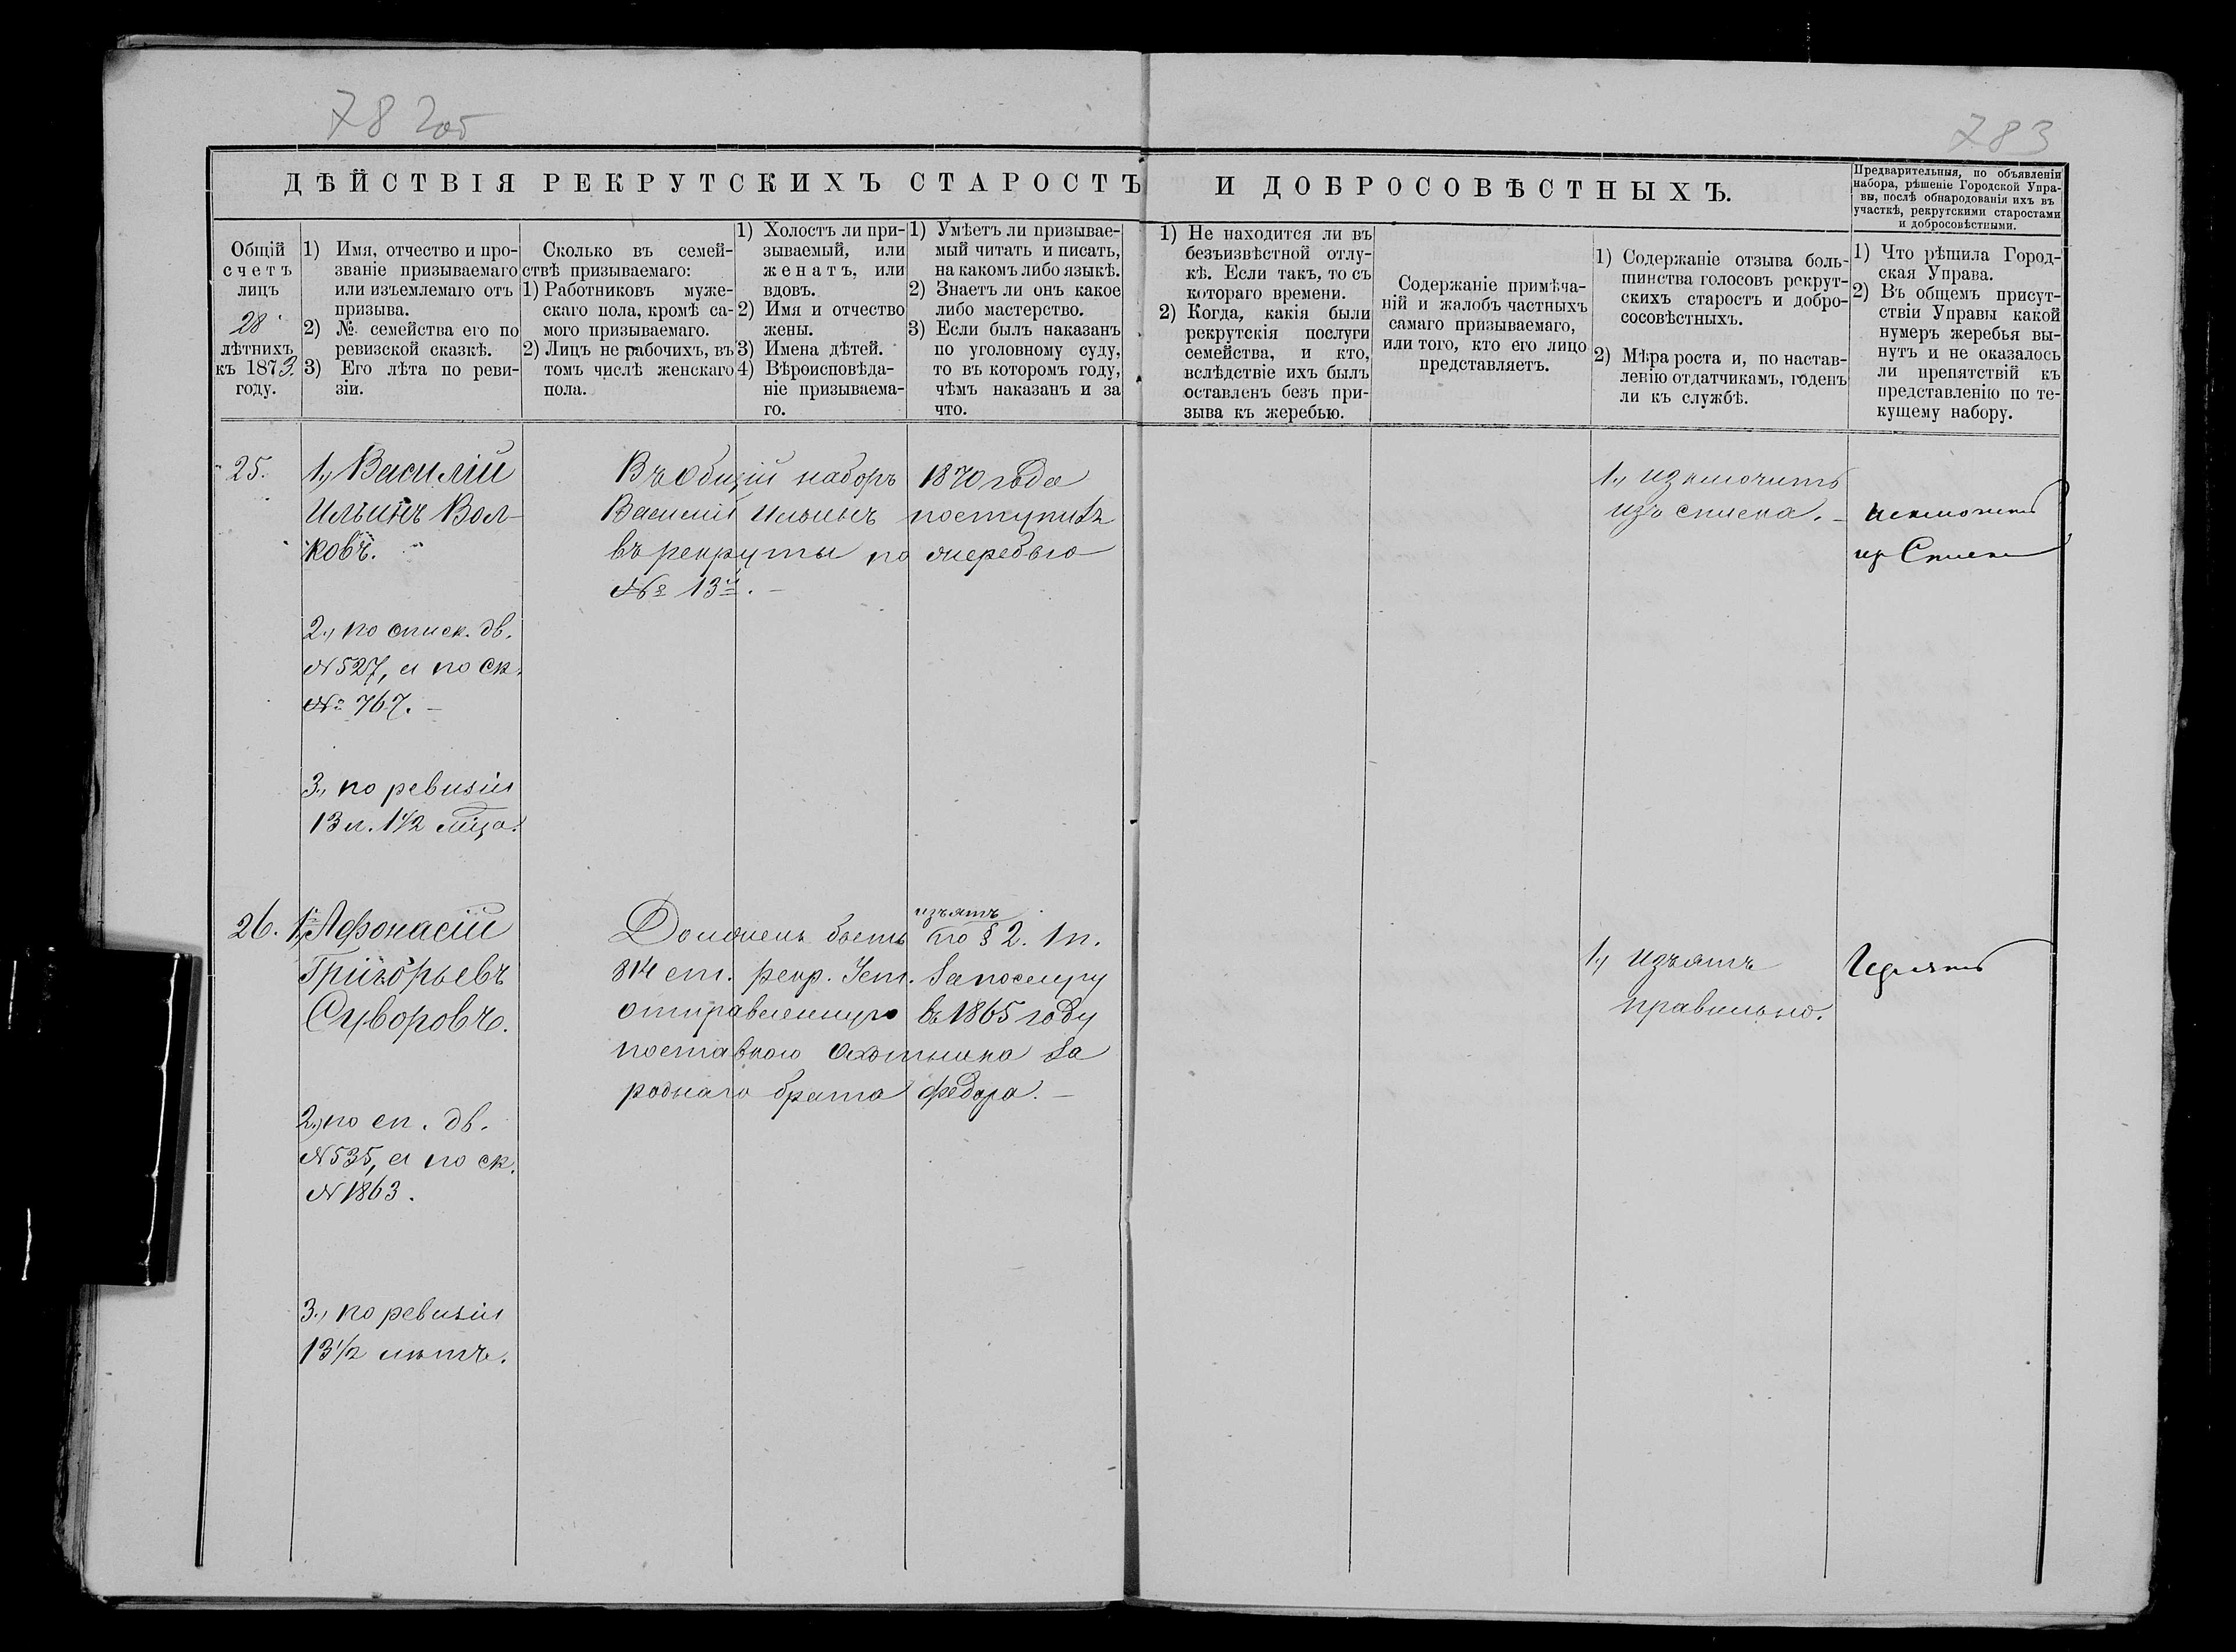 78 2об
783
ДѢЙСТВІЯ РЕКРУТСКИХЪ СТАРОСТЪ И ДОБРОСОВѢСТНЫХЪ.
Предварительныя, по объявленіи
набора, рѣшеніе Городской Упра-
вы, послѣ обнародованія ихъ въ
участкѣ, рекрутскими старостами
и добросовѣстными.
Общій
счетъ
лицъ
28
лѣтнихъ
къ 1873.
году.
1) Имя, отчество и про-
званіе призываемаго
или изъемлемаго отъ
призыва.
2) №. семейства его по
ревизской сказкѣ.
3) Его лѣта по реви-
зіи.
Сколько въ семей-
ствѣ призываемаго:
1) Работниковъ муже-
скаго пола, кромѣ са-
мого призываемаго.
2) Лицъ не рабочихъ, въ
томъ числѣ женскаго
пола.
1) Холостъ ли при-
зываемый, или
женатъ, или
вдовъ.
2) Имя и отчество
жены.
3) Имена дѣтей.
4) Вѣроисповѣда-
ніе призываема-
го.
1) Умѣетъ ли призывае-
мый читать и писать,
на какомъ либо языкѣ.
2) Знаетъ ли онъ какое
либо мастерство.
3) Если былъ наказанъ
по уголовному суду,
то въ которомъ году,
чѣмъ наказанъ и за
что.
1) Не находится ли въ
безъизвѣстной отлу-
кѣ. Если такъ, то съ
котораго времени.
2) Когда, какія были
рекрутскія послуги
семейства, и кто,
вслѣдствіе ихъ былъ
оставленъ безъ при-
зыва къ жеребью.
Содержаніе примѣча-
ній и жалобъ частныхъ
самаго призываемаго,
или того, кто его лицо
представляетъ.
1) Содержаніе отзыва боль-
шинства голосовъ рекрут-
скихъ старостъ и добро-
сосовѣстныхъ.
2) Мѣра роста и, по настав-
ленію отдатчикамъ, годенъ
ли къ службѣ.
1) Что рѣшила Город-
ская Управа.
2) Въ общемъ присут-
ствіи Управы какой
нумеръ жеребья вы-
нутъ и не оказалось
ли препятствій къ
представленію по те-
кущему набору.
25.
1., Василій
Ильинъ Вол-
ковъ.
2., по списк. дв.
№ 527, а по ск.
№ 767. –
3., по ревизіи
13 л. 1 1/2 мѣца.
Въ общій наборъ 1870 года
Василій Ильинъ поступилъ
въ рекруты по очередью
№ 13й. –
1., изключить
изъ списка. –
исключить
из Списка
26.
1., Афонасій
Григорьевъ
Суворовъ.
2., по сп. дв.
№ 535, а по ск.
№ 1863.
3., по ревизіи
13 1/2 лѣтъ.
изъятъ
Долженъ быть по § 2. 1 п.
814 ст. рекр. Уст. за послугу
отправленную въ 1865 году
поставкою охотника за
роднаго брата Федора. –
1., изъятъ
правильно.
Изъять